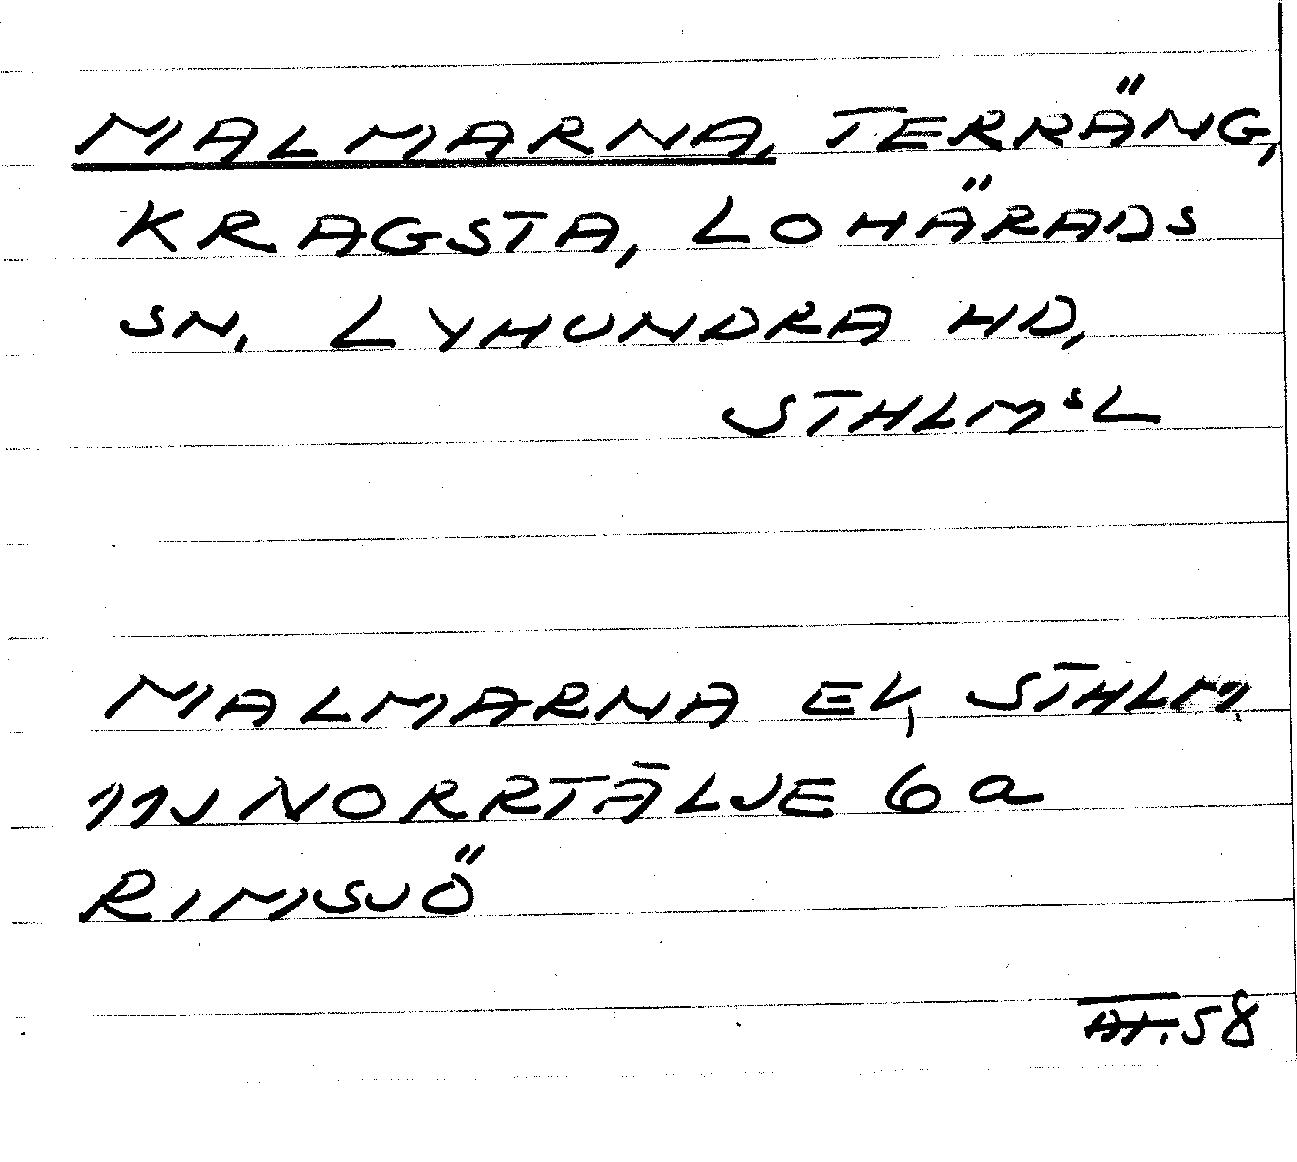 MALMARNA, TERRÄNG,
KRAGSTA, LOHÄRADS
SN, LYHUNDRA HD,
STHLMˢL
MALMARNA EK, STHLM
11J NORRTÄLJE 6a
RIMSJÖ
58